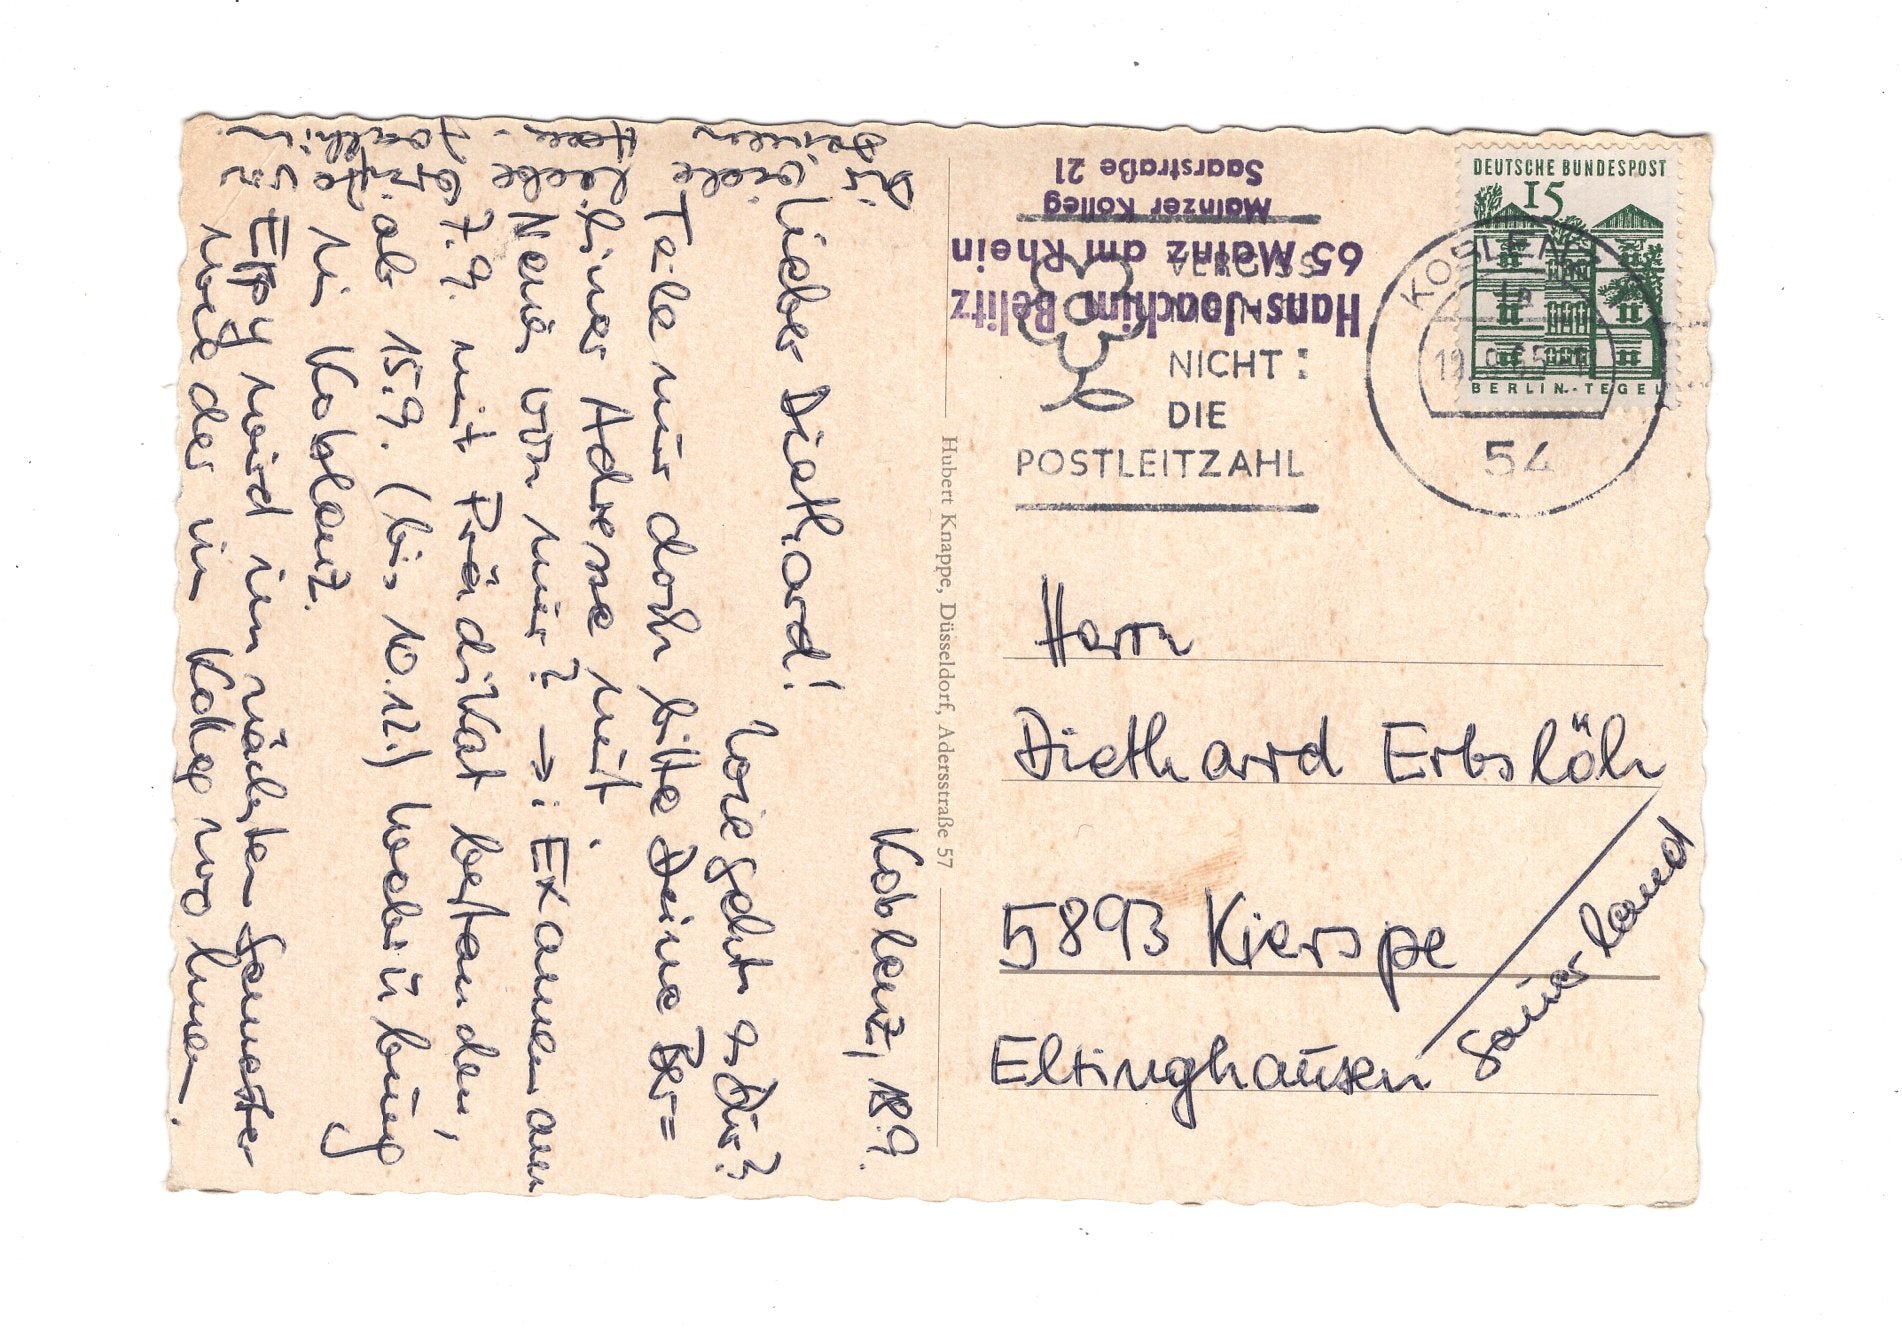 Koblenz, 18.9.
Lieber Diethard!
Wie geht es Dir?
Teile mir doch bitte Deine Ber=
liner Adresse mit.
Neues von mir? → : Examen am
7.9. mit Prädikat bestanden,
ab 15.9. (bis 10.12.) Hochbauübung
in Koblenz.
Eppy wird im nächsten Semester
wieder im Kolleg wohnen.
Dir
und
Deinen
viele
liebe
Grüße
Joachim
Hans-Joachim Belitz
65 Mainz am Rhein
Mainzer Kolleg
Saarstraße 21
Hubert Knappe, Düsseldorf, Adersstraße 57
DEUTSCHE BUNDESPOST
15
BERLIN-TEGEL
KOBLENZ
54
NICHT :
DIE
POSTLEITZAHL
Herrn
Diethard Erbslöh
5893 Kierspe
Eltinghausen
Sauerland